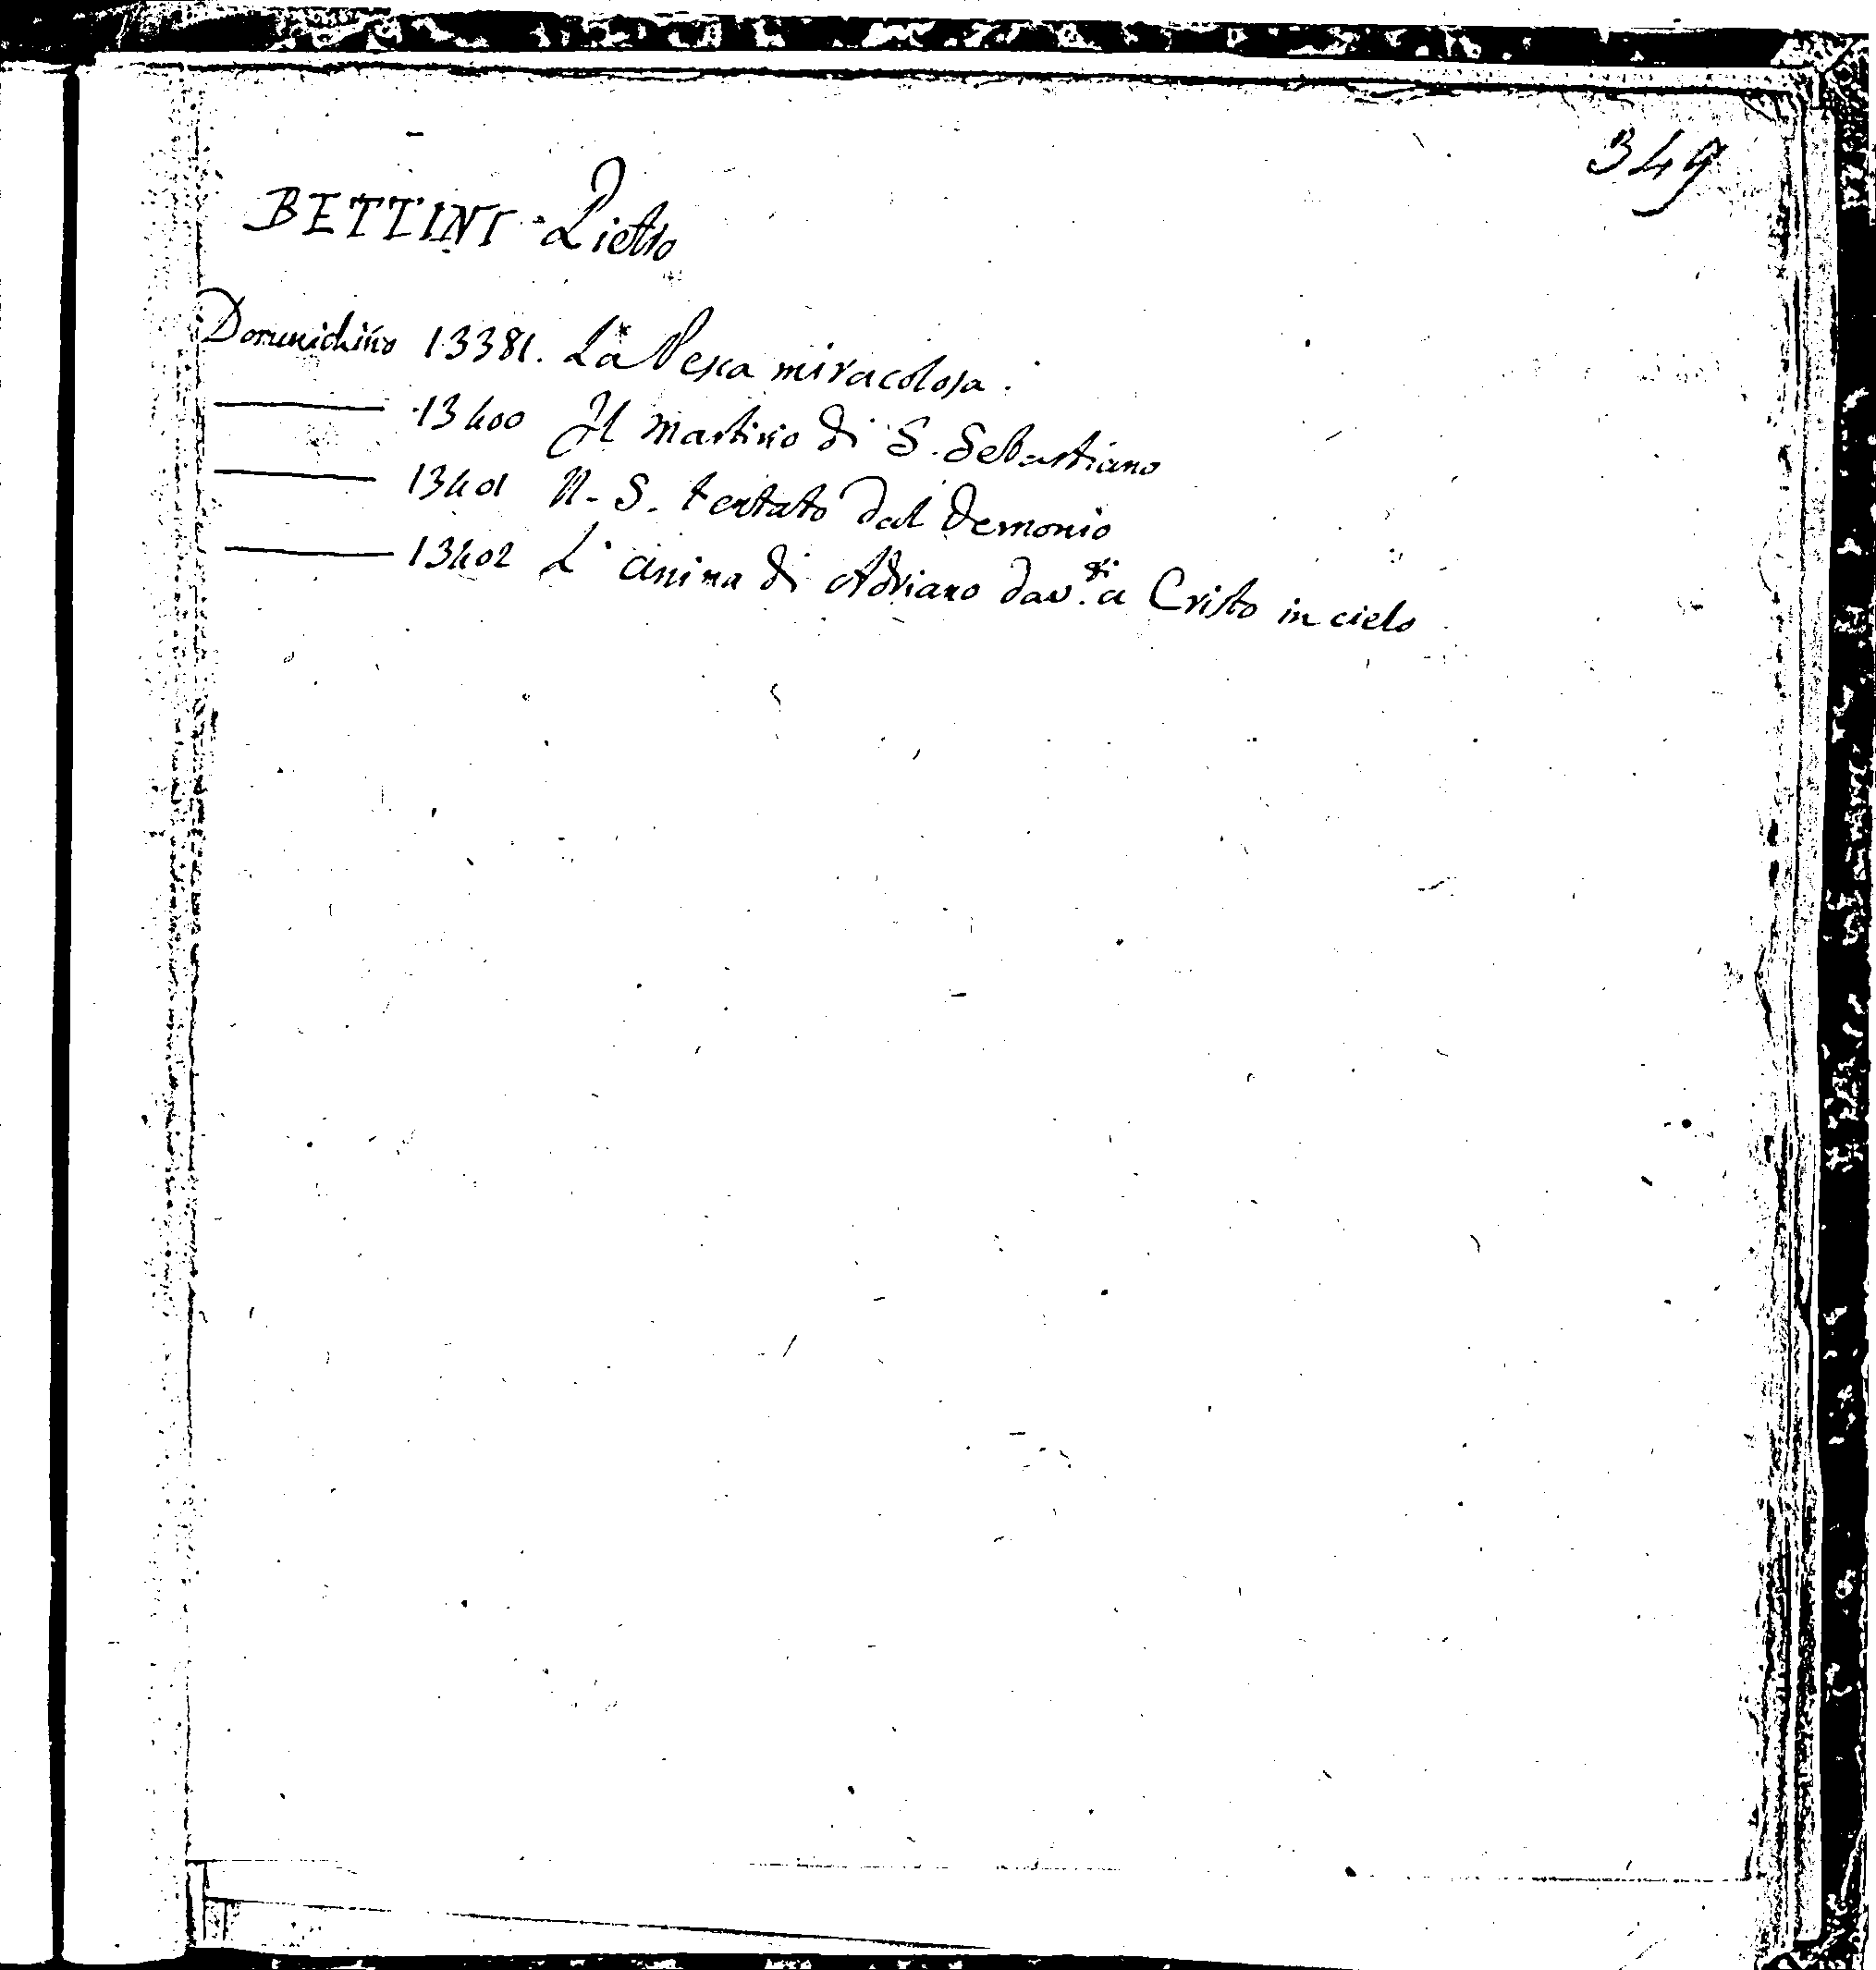 349
BETTINI Pietro
Domenichino 13381. La Pesca miracolosa.
——— 13400 Il Martirio di S. Sebastiano
——— 13401 N. S. tentato dal Demonio
——— 13402 L'anima di Adriano dav.ti a Cristo in cielo